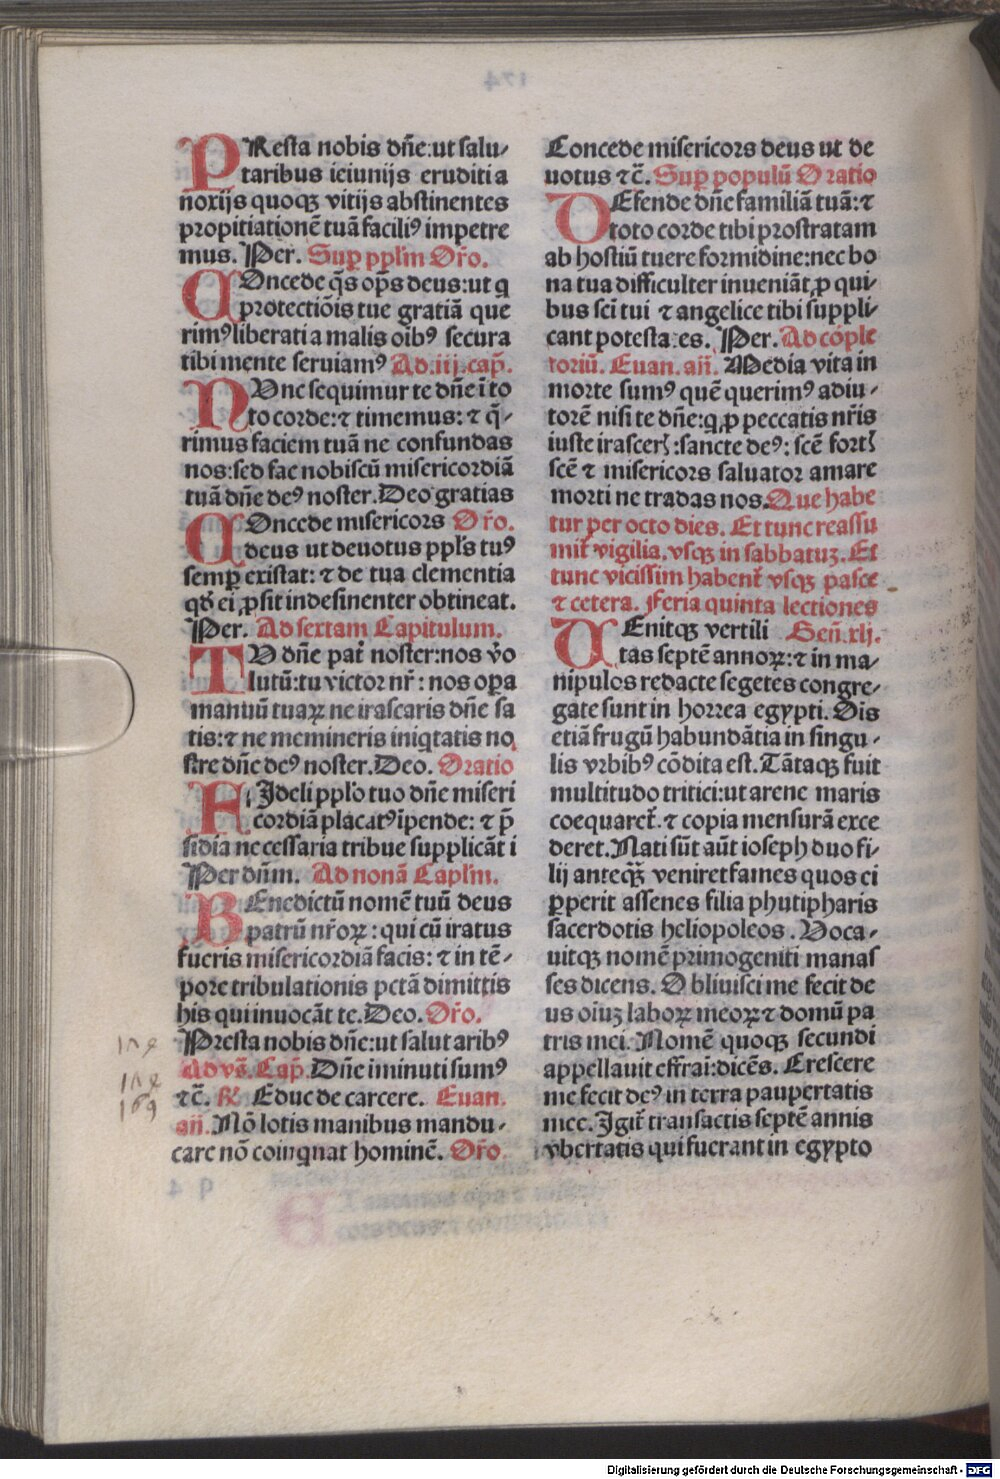 PResta nobis dñe:ut salu-
taribus ieiunijs eruditi a
ñoxijs quoqꝫ vitijs abstinentes
propitiationē tuā faciliꝰ impetre
mus. Per. Suꝑ pplm̄ Or̄o.
COncede q̄s op̄s deus:ut q
protectiōis tue gratiā que
rimꝰ liberati a malis oībꝰ secura
tibi mente seruiamꝰ Ad.iij.cap̄.
NUnc sequimur te dñe ī to
to corde:⁊ timemus: ⁊ q̄-
rimus faciem tuā ne confundas
nos:sed fac nobiscū misericordiā
tuā dñe deꝰ noster. Deo gratias
COncede misericors Or̄o.
deus ut deuotus ppl's tuꝰ
semꝑ existat: ⁊ de tua clementia
qđ ei ꝓsit indesinenter obtineat.
Per. Ad sextam Capitulum.
TU dñe pať noster:nos v̄o
lutū:tu victor nr̄: nos oꝑa
manuū tuaꝝ ne irascaris dñe sa
tis:⁊ ne memineris iniqtatis no
stre dñe deꝰ noster. Deo. Oratio
FIdeli ppl'o tuo dñe miseri
cordiā placatꝰ īpende: ⁊ p̄
sidia necessaria tribue supplicāt i
Per dn̄m. Ad nonā Caplm̄.
BEnedictū nomē tuū deus
patrū nr̄oꝝ: qui cū iratus
fueris misericordiā facis: ⁊ in tē-
pore tribulationis pctā dimittis
his qui inuocāt te. Deo. Or̄o.
Presta nobis dñe:ut salutaribꝰ
Ad vs̄. Cap̄. Dñe iminuti sumꝰ
⁊c̄. R̄. Educ de carcere. Euan.
añ. Nō lotis manibus mandu-
care nō coinqnat hominē. Or̄o
Concede misericors deus ut de
uotus ⁊c̄. Suꝑ populū Oratio
DEfende dñe familiā tuā: ⁊
toto corde tibi prostratam
ab hostiū tuere formidine:nec bo
na tua difficulter inueniāt ꝓ qui-
bus sc̄i tui ⁊ angelice tibi suppli-
cant potestates. Per. Ad cōple
toriū. Euan. añ. Media vita in
morte sumꝰ quē querimꝰ adiu-
torē nisi te dñe:q ꝓ peccatis nr̄is
iuste irasceř:sancte deꝰ: scē fortꝭ
scē ⁊ misericors saluator amare
morti ne tradas nos. Que habe
tur per octo dies. Et tunc reassu
miť vigilia. vsqꝫ in sabbatuꝫ. Et
tunc vicissim habenť vsqꝫ pasce
⁊ cetera. Feria quinta lectiones
UEnitqꝫ vertili Geñ.xlj.
tas septē annoꝝ: ⁊ in ma-
nipulos redacte segetes congre-
gate sunt in horrea egypti. Dis
etiā frugū habundātia in singu-
lis vrbibꝰ cōdita est. Tātaqꝫ fuit
multitudo tritici:ut arene maris
coequareť. ⁊ copia mensurā exce
deret. Nati sūt aūt ioseph duo fi-
lij anteqꝫ̄ veniret fames quos ei
ꝑperit assenes filia phutipharis
sacerdotis heliopoleos. Voca-
uitqꝫ nomē primogeniti manas
ses dicens. Obliuisci me fecit de
us oiuꝫ laboꝝ meoꝝ ⁊ domū pa
tris mei. Nomē quoqꝫ secundi
appellauit effrai:dicēs. Crescere
me fecit deꝰ in terra paupertatis
mee. Igiť transactis septē annis
vbertatis qui fuerant in egypto